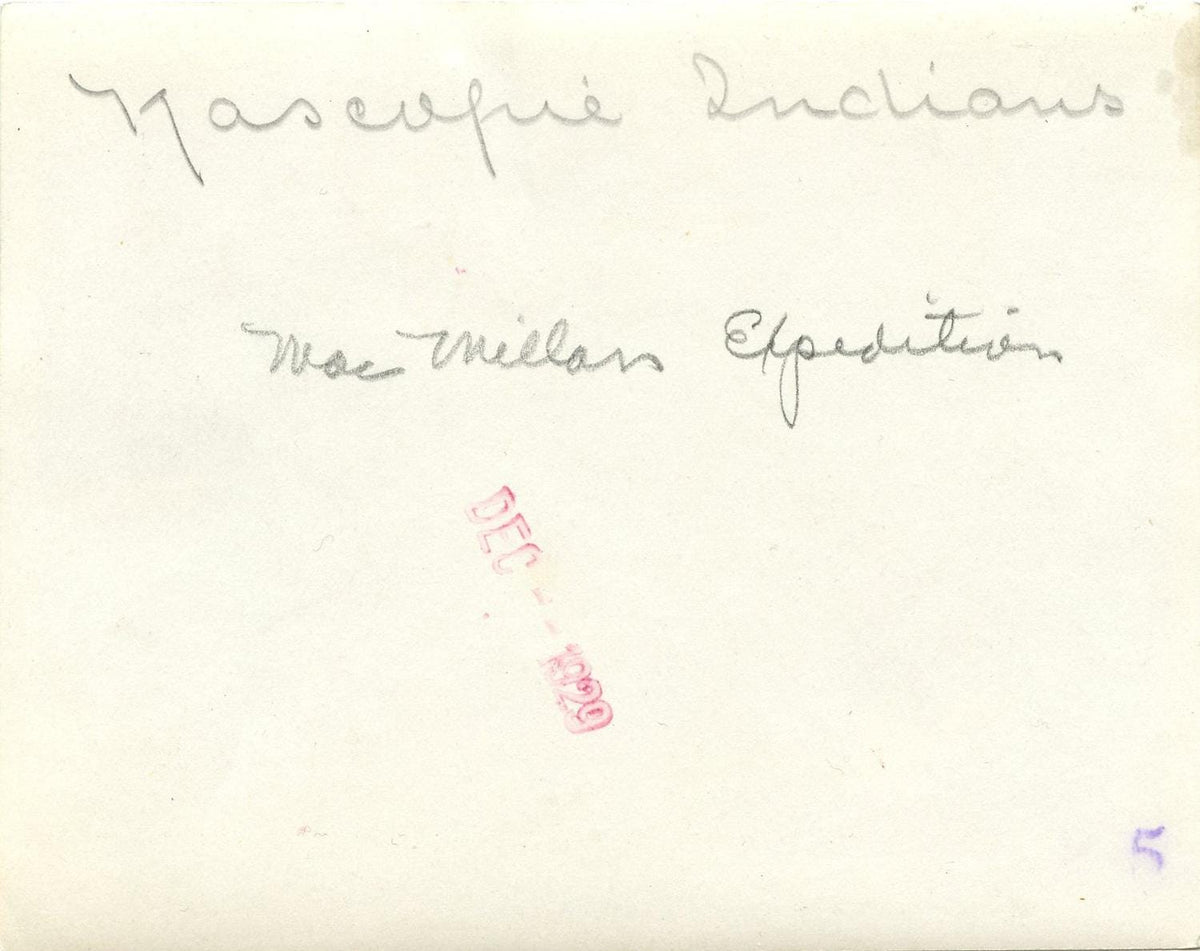 Nascopie Indians
Mac Millan Expedition
DEC - - 1929
5